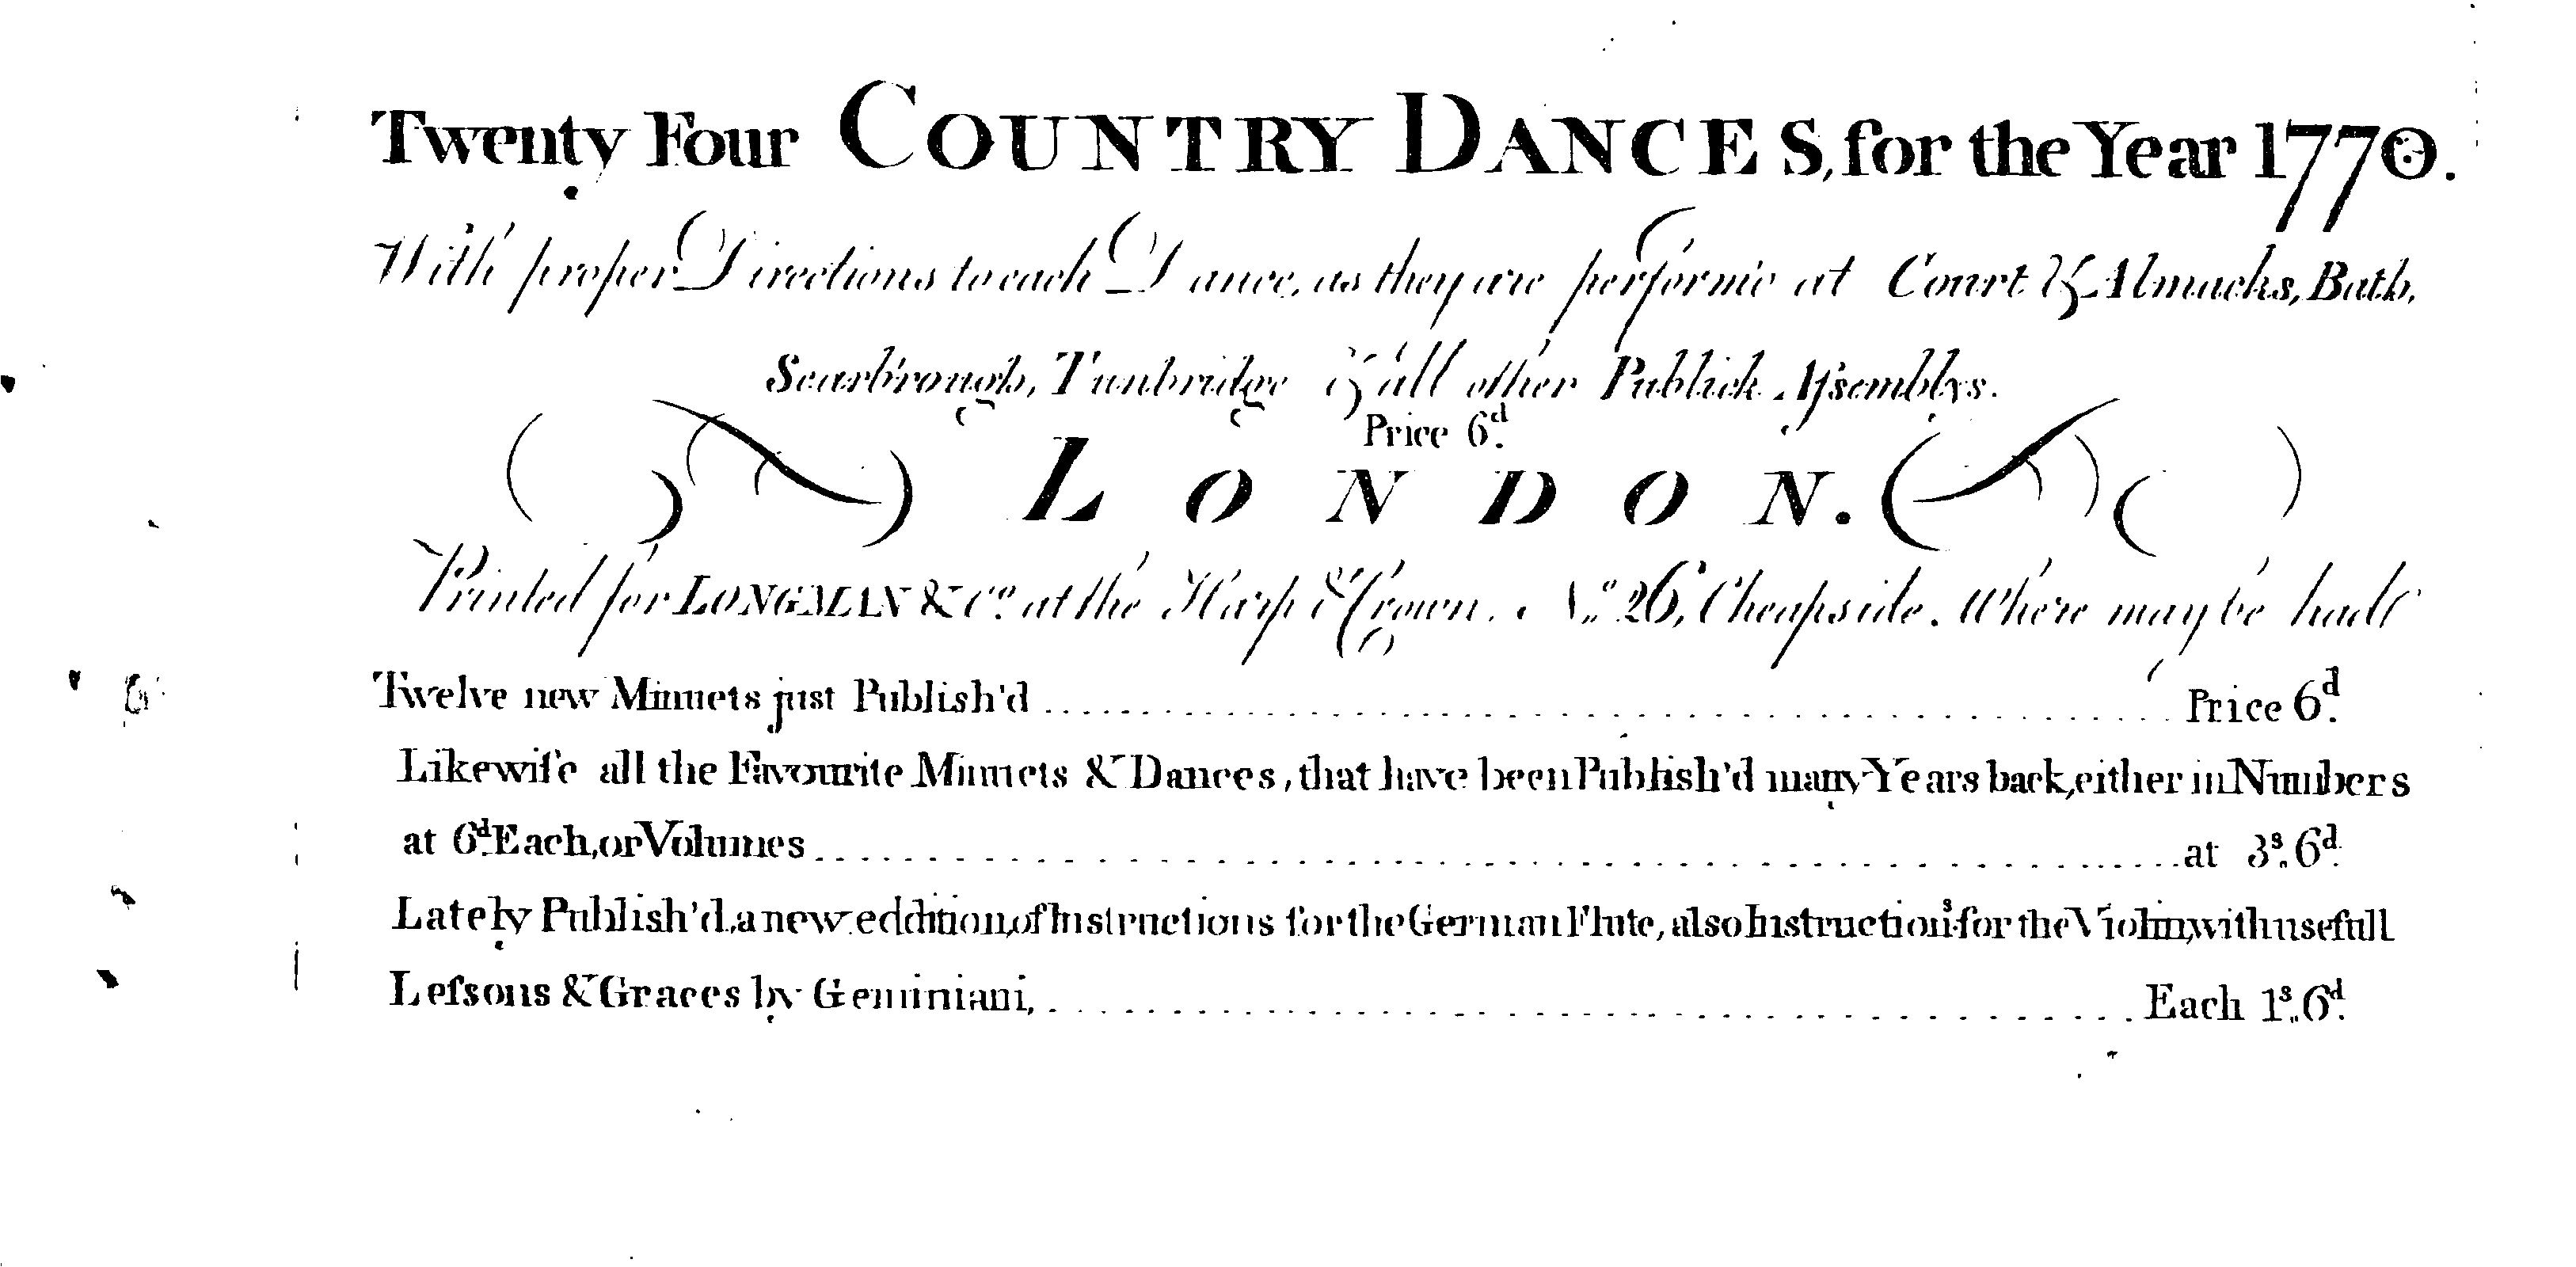 Twenty Four COUNTRY DANCES, for the Year 1770.
With proper Directions to each Dance, as they are perform'd at Court & Almacks, Bath,
Scarbrough, Tunbridge & all other Publick Assemblys.
Price 6d.
LONDON.
Printed for LONGMAN & Co. at the Harp & Crown. No. 26, Cheapside. Where may be had
Twelve new Minuets just Publish'd Price 6d.
Likewiſe all the Favourite Minuets & Dances, that have been Publish'd many Years back, either in Numbers
at 6d. Each, or Volumes at 3s. 6d.
Lately Publish'd, a new eddition, of Instructions for the German Flute, also Instructions for the Violin, with usefull
Leſsons & Graces by Geminiani, Each 1s. 6d.